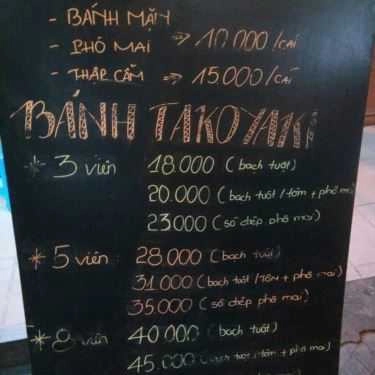 - BÁNH MẶN
- PHÔ MAI => 10.000/CÁI
- THẬP CẨM => 15.000/CÁI
BÁNH TAKOYAKI
* 3 viên 18.000 (bạch tuộc)
20.000 (bạch tuột / tôm + phô mai)
23000 (sò điệp phô mai)
* 5 viên: 28000 (bạch tuột)
31000 (bạch tuột / TÔM + phô mai)
35000 (sò điệp phô mai)
* 8 viên 40000 (bạch tuột)
45.000 tuột / tôm + phô mai)